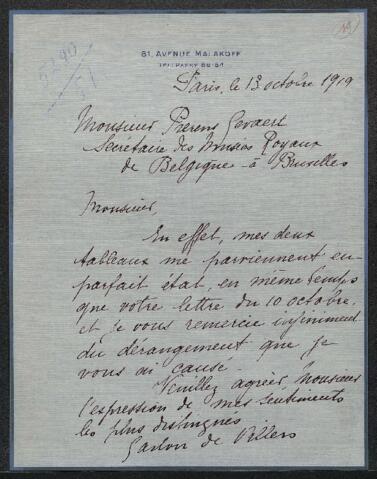 19
81. AVENUE MALAKOFF
TÉL. PASSY 86-54
5790
Paris, le 13 octobre 1919
Monsieur Fierens Gevaert
Secrétaire des Musées Royaux
de Belgique à Bruxelles
Monsieur,
En effet, mes deux
tableaux me parviennent en
parfait état, en même temps
que votre lettre du 10 octobre,
et je vous remercie infiniment
du dérangement que je
vous ai causé.
Veuillez agréer, Monsieur
l'expression de mes sentiments
les plus distingués
Gaston de Villers